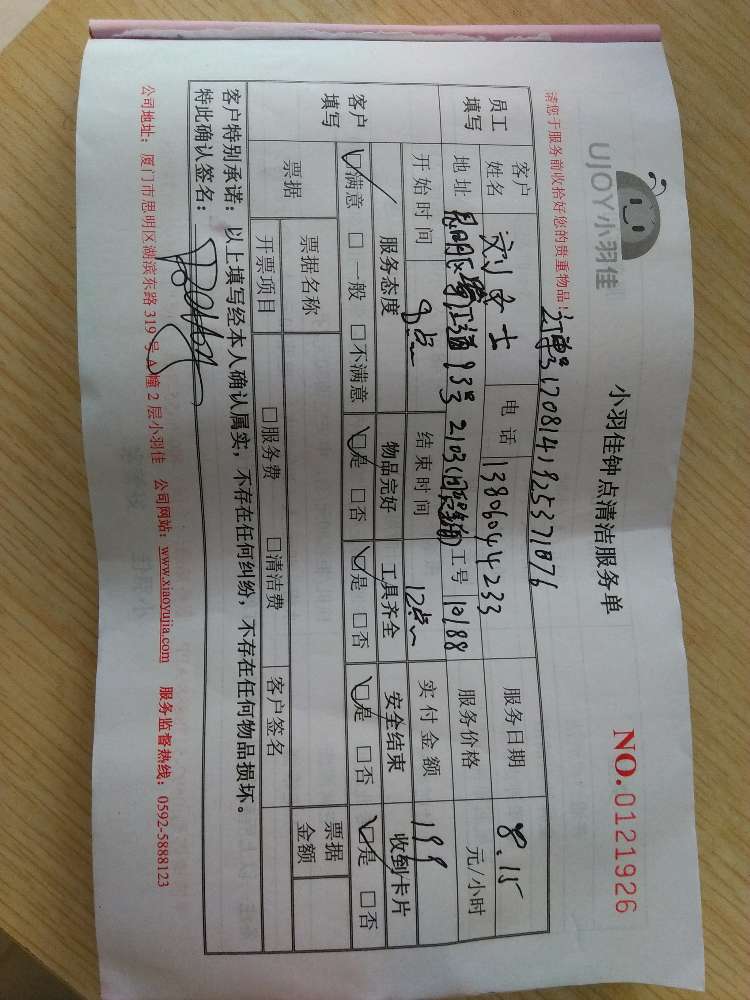 UJOY小羽佳
小羽佳钟点清洁服务单
NO.0121926
请您于服务前收拾好您的贵重物品!
订单号1708141925371876
员工填写
客户姓名 刘女士 电话 13806044233 服务日期 8.15
地址: 思明区 93号2103 工号 10188 服务价格 元/小时
开始时间 8点 结束时间 12点 实付金额 199
客户填写
服务态度 物品完好 工具齐全 安全结束 收到卡片
☑满意 □一般 □不满意 ☑是 □否 ☑是 □否 ☑是 □否 ☑是 □否
票据 票据名称 票据金额
开票项目 □服务费 □清洁费 客户签名
客户特别承诺:以上填写经本人确认属实,不存在任何纠纷,不存在任何物品损坏。
特此确认签名:
公司地址:厦门市思明区湖滨东路319号A幢2层小羽佳 公司网站:www.xiaoyujia.com 服务监督热线:0592-5888123